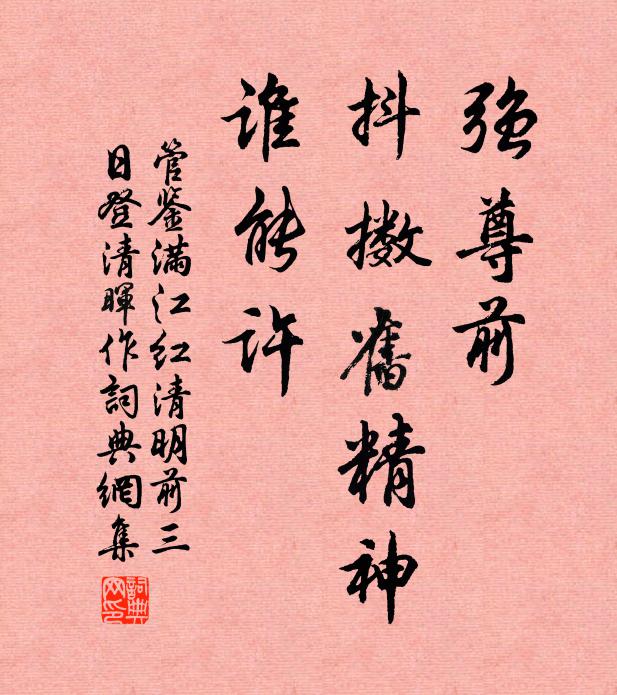 强尊前
抖擞舊精神
誰能許
管鉴滿江红清明前三
日登清暉作詞典網集
詞典
网印